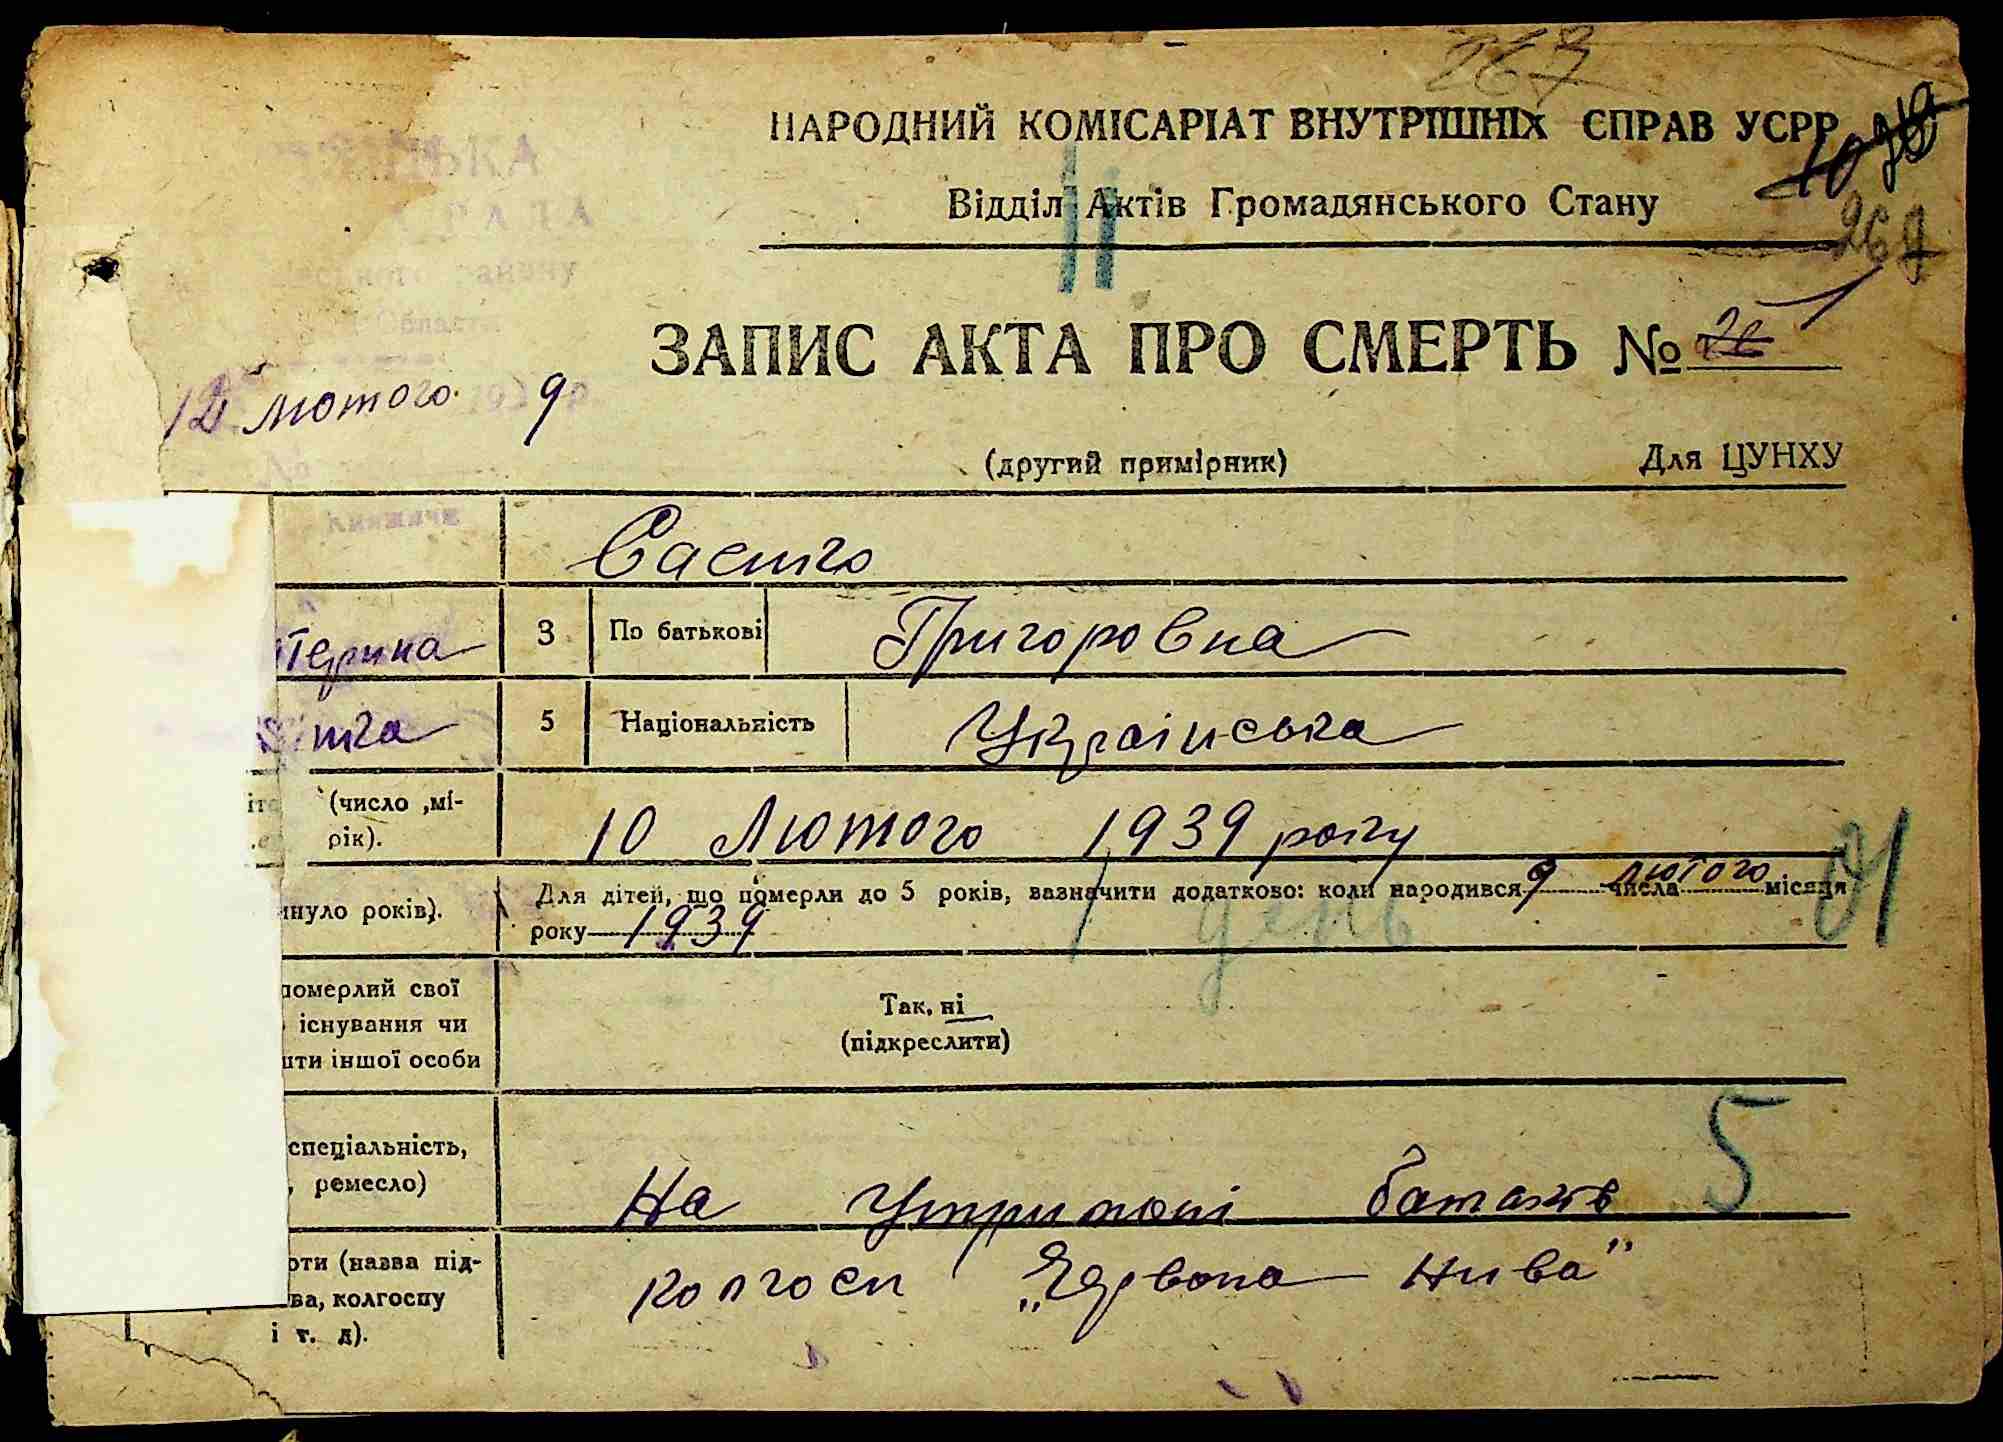 267
НАРОДНИЙ КОМІСАРІАТ ВНУТРІШНІХ СПРАВ УСРР
Відділ Актів Громадянського Стану
267
ЗАПИС АКТА ПРО СМЕРТЬ № 1
12 лютого 1939 р.
(другий примірник) Для ЦУНХУ
терина 3 По батькові Григоровна
5 Національність Українська
(число, мі-
рік). 10 Лютого 1939 року
инуло років). Для дітей, що померли до 5 років, вазначити додатково: коли народився 9 числа лютого місяця
року 1939
1 день
01
померлий свої
існування чи
шти іншої особи
Так, ні
(підкреслити)
спеціальність,
, ремесло)
На Утримані батьків 5
оти (назва під-
ва, колгоспу
і т. д).
колгосп „Червона Нива"